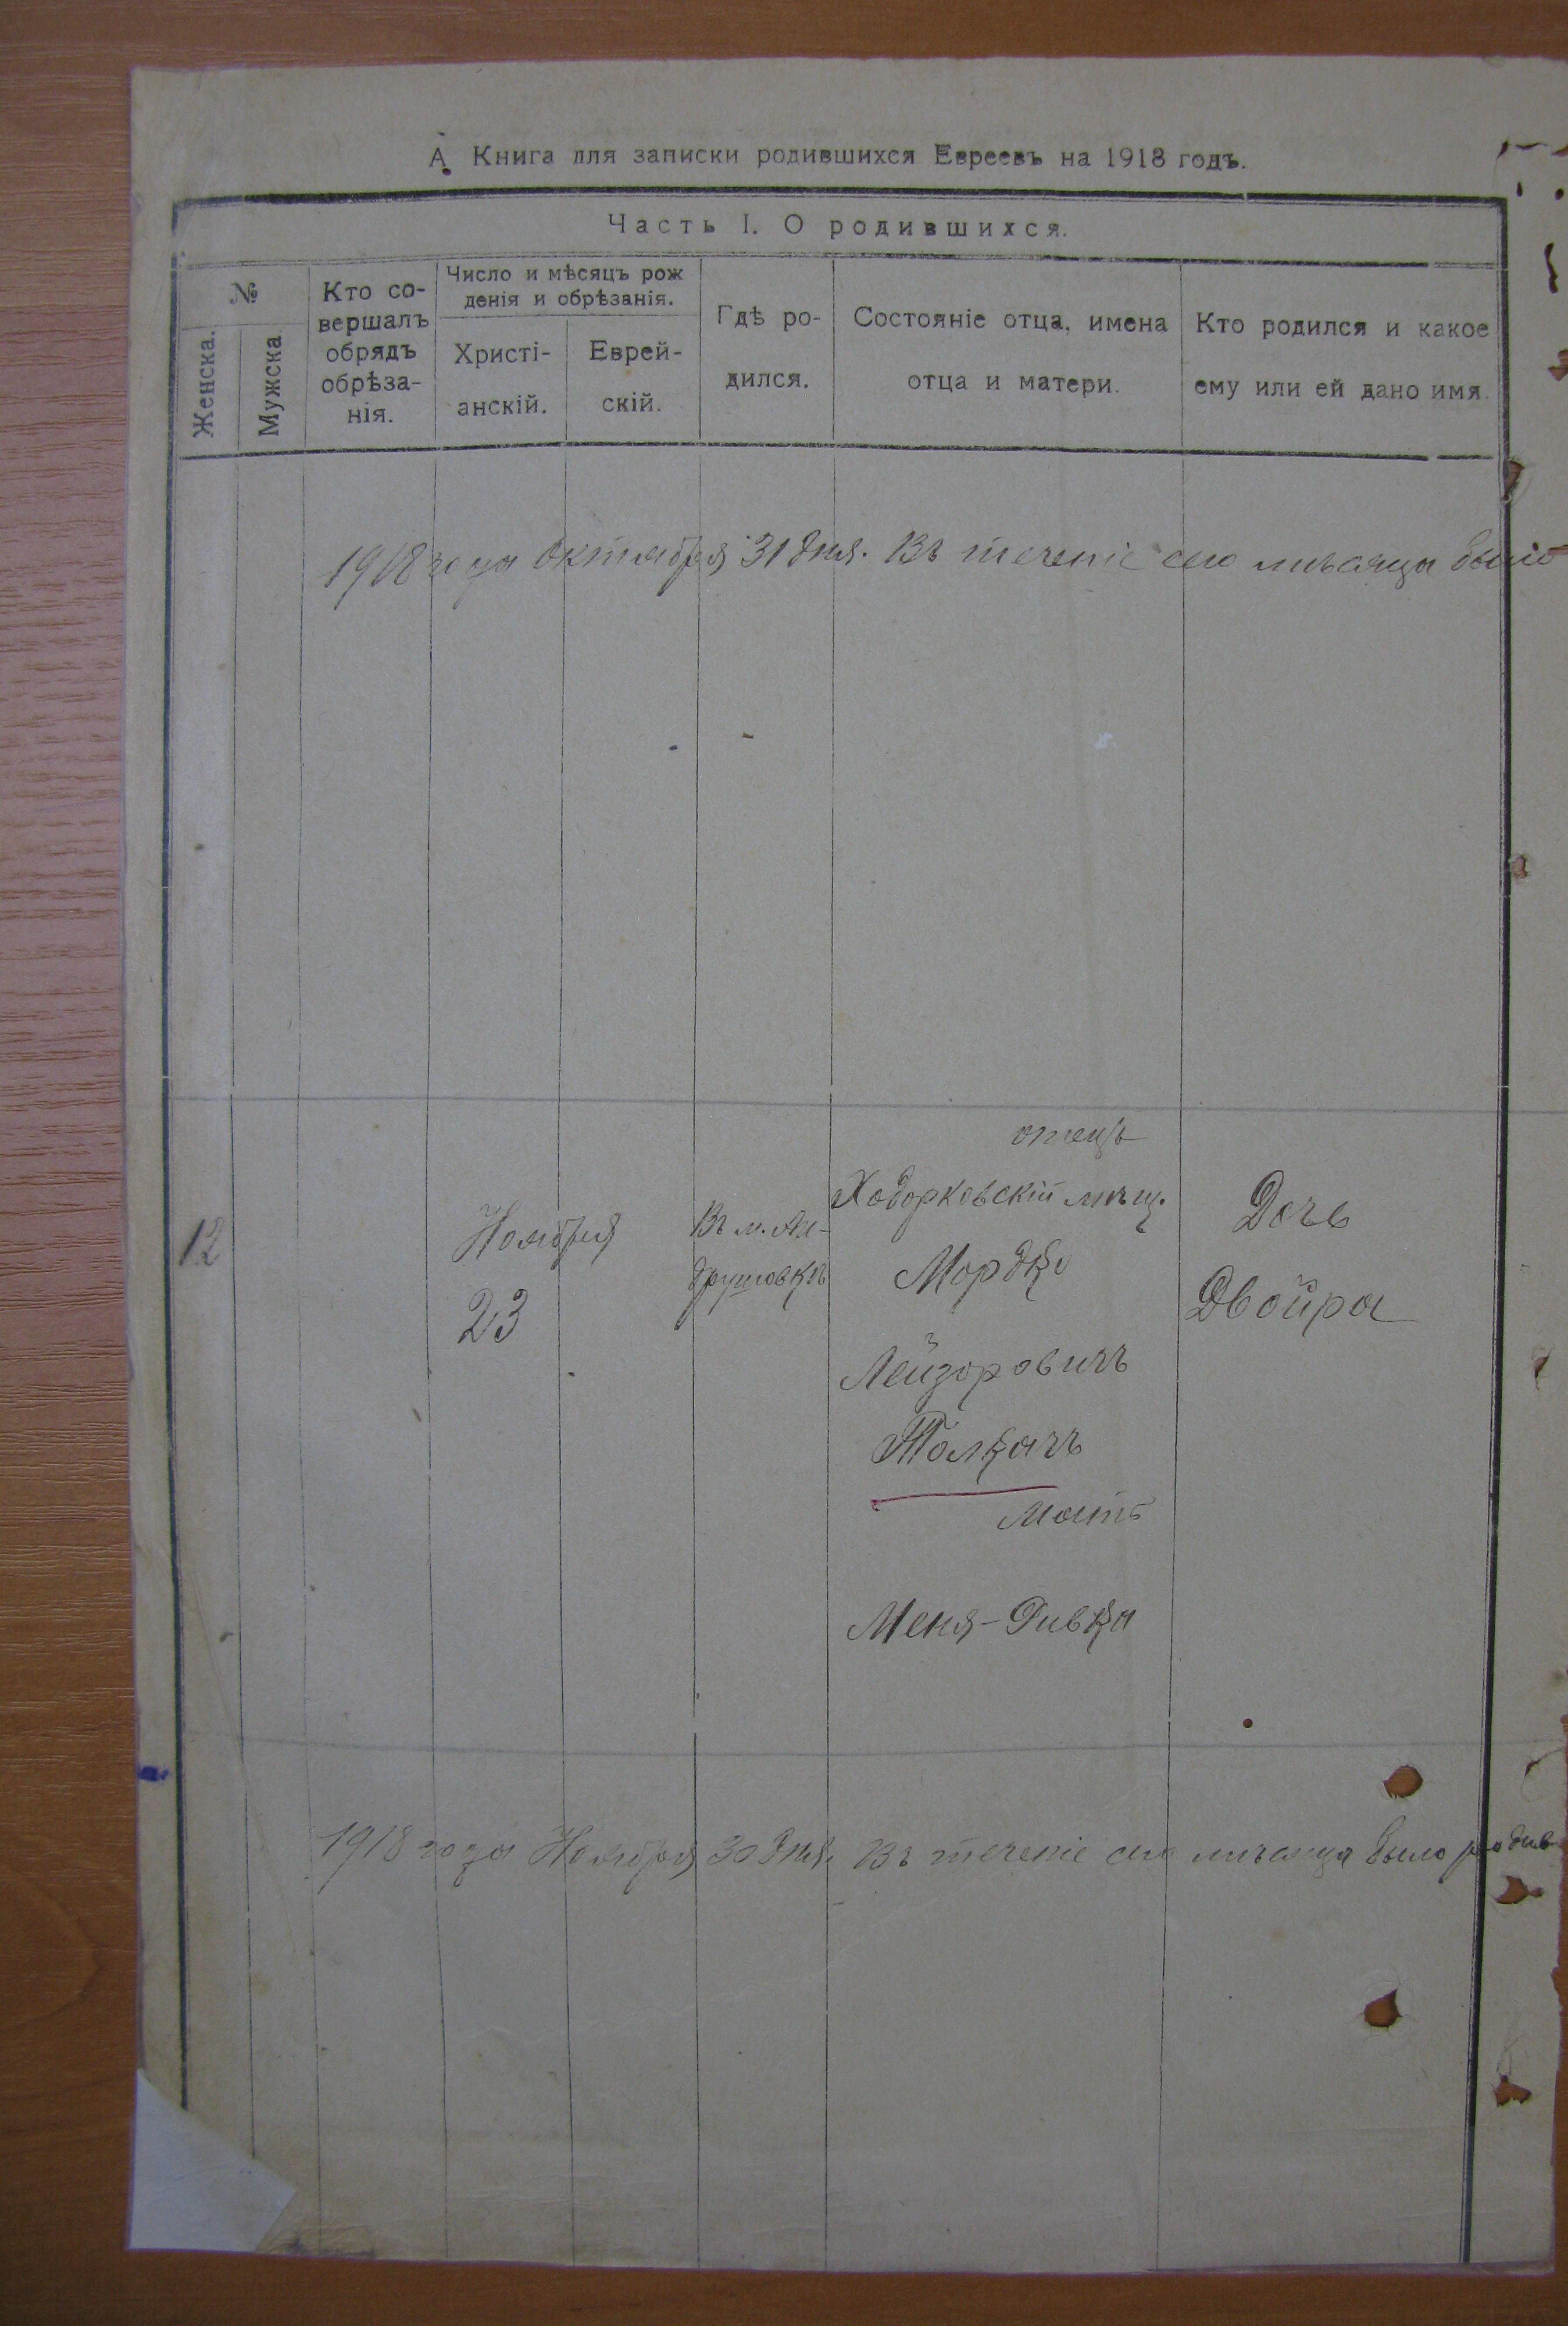 А Книга для записки родившихся Евреевъ на 1918 годъ.
Часть I. О родившихся.
№
Женска.
Мужска
Кто со-
вершалъ
обрядъ
обрѣза-
нія.
Число и мѣсяцъ рож
денія и обрѣзанія.
Христі-
анскій.
Еврей-
скій.
Гдѣ ро-
дился.
Состояніе отца, имена
отца и матери.
Кто родился и какое
ему или ей дано имя.
1918 года Октября 31 дня. Въ теченіе сего мѣсяца было
12
Ноября
23
Въ м. Ан-
друшовкѣ
отецъ
Ходорковскій мѣщ.
Мордко
Лейзоровичъ
Толкачъ
мать
Меня-Ривка
Дочь
Двойра
1918 года Ноября 30 дня. Въ теченіе сего мѣсяца было родив